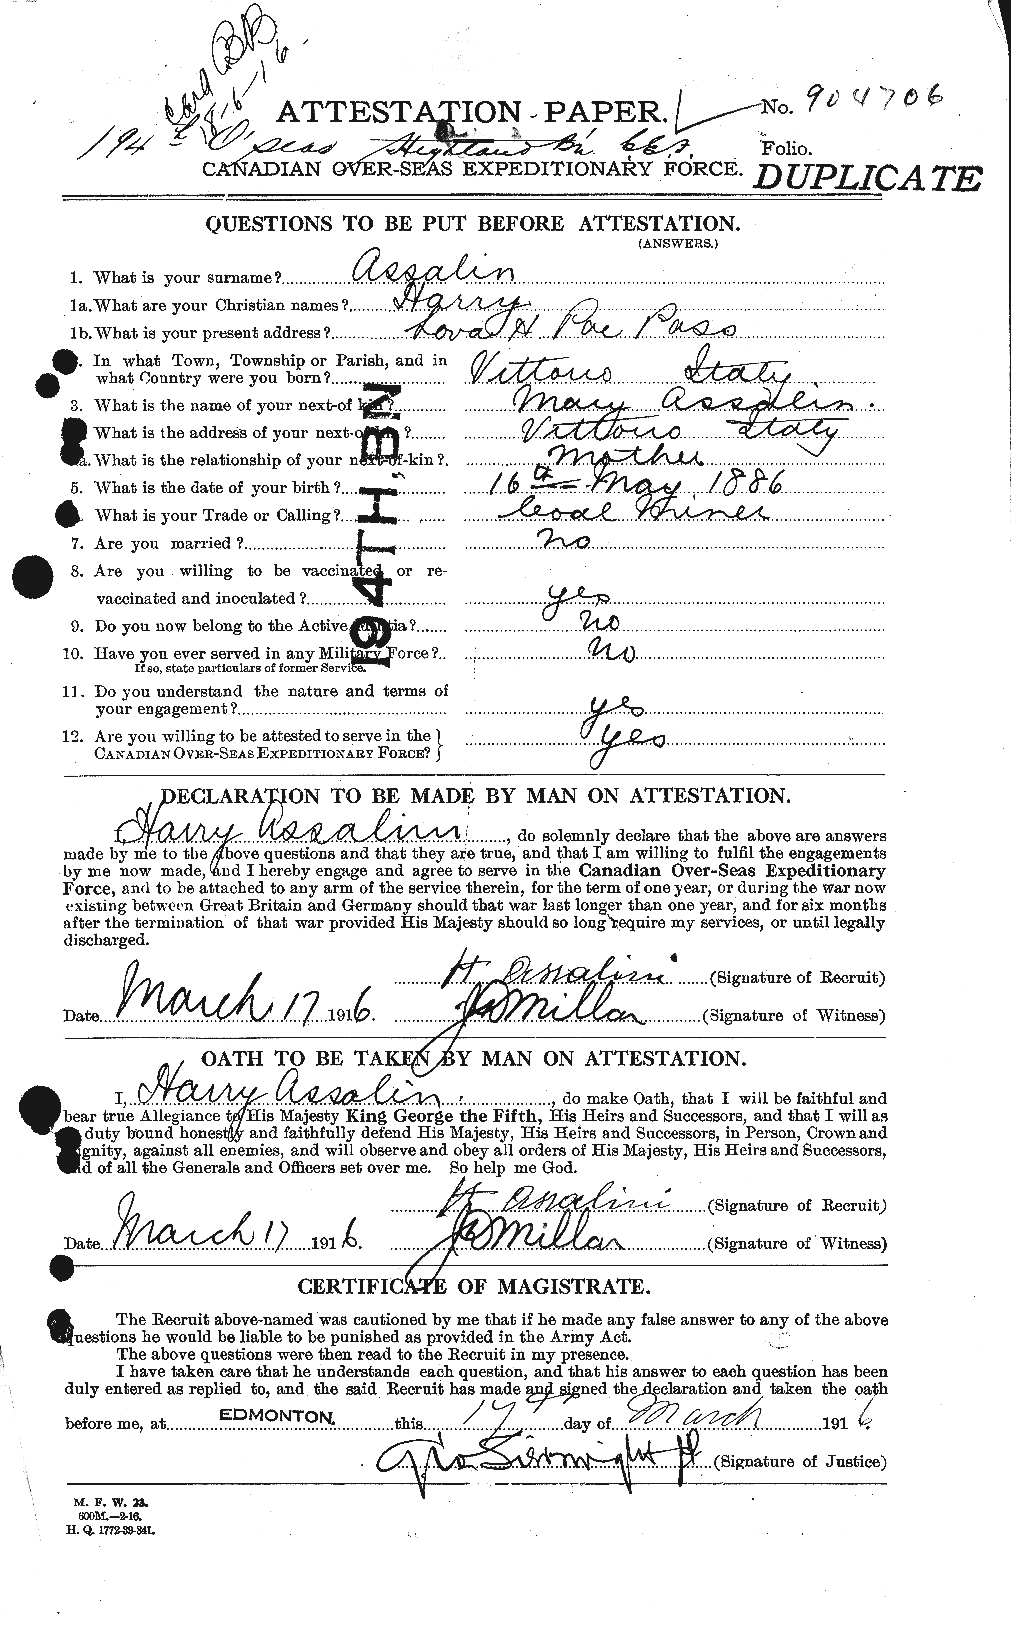 Card BB
18-6-16
ATTESTATION PAPER. No. 904706
194th O'seas Highland Bn C.E.F. Folio.
CANADIAN OVER-SEAS EXPEDITIONARY FORCE. DUPLICATE
QUESTIONS TO BE PUT BEFORE ATTESTATION.
(ANSWERS.)
1. What is your surname? Assalin
1a. What are your Christian names? Harry
1b. What is your present address? Pass
. In what Town, Township or Parish, and in
what Country were you born? Vittorio Italy
3. What is the name of your next-of kin? Mary Assalin.
What is the address of your next-o ? Vittorio Italy
a. What is the relationship of your next-of-kin? Mother
5. What is the date of your birth? 16th May 1886
. What is your Trade or Calling? Coal Miner
7. Are you married? No
8. Are you willing to be vaccinated or re-
vaccinated and inoculated? yes
9. Do you now belong to the Active Militia? No
10. Have you ever served in any Military Force? No
If so, state particulars of former Service.
11. Do you understand the nature and terms of
your engagement? yes
12. Are you willing to be attested to serve in the
CANADIAN OVER-SEAS EXPEDITIONARY FORCE? yes
194TH. BN
DECLARATION TO BE MADE BY MAN ON ATTESTATION.
Harry Assalini, do solemnly declare that the above are answers
made by me to the above questions and that they are true, and that I am willing to fulfil the engagements
by me now made, and I hereby engage and agree to serve in the Canadian Over-Seas Expeditionary
Force, and to be attached to any arm of the service therein, for the term of one year, or during the war now
existing between Great Britain and Germany should that war last longer than one year, and for six months
after the termination of that war provided His Majesty should so long require my services, or until legally
discharged.
H Assalini (Signature of Recruit)
Date March 17 1916. J Millar (Signature of Witness)
OATH TO BE TAKEN BY MAN ON ATTESTATION.
I, Harry Assalin, do make Oath, that I will be faithful and
bear true Allegiance to His Majesty King George the Fifth, His Heirs and Successors, and that I will as
duty bound honestly and faithfully defend His Majesty, His Heirs and Successors, in Person, Crown and
ignity, against all enemies, and will observe and obey all orders of His Majesty, His Heirs and Successors,
nd of all the Generals and Officers set over me. So help me God.
H Assalini (Signature of Recruit)
Date March 17 1916. J Millar (Signature of Witness)
CERTIFICATE OF MAGISTRATE.
The Recruit above-named was cautioned by me that if he made any false answer to any of the above
uestions he would be liable to be punished as provided in the Army Act.
The above questions were then read to the Recruit in my presence.
I have taken care that he understands each question, and that his answer to each question has been
duly entered as replied to, and the said Recruit has made and signed the declaration and taken the oath
before me, at EDMONTON. this 17th day of March 1916
Geo Sievwright JP (Signature of Justice)
M. F. W. 23.
600M.—2-16.
H. Q. 1772-39-841.